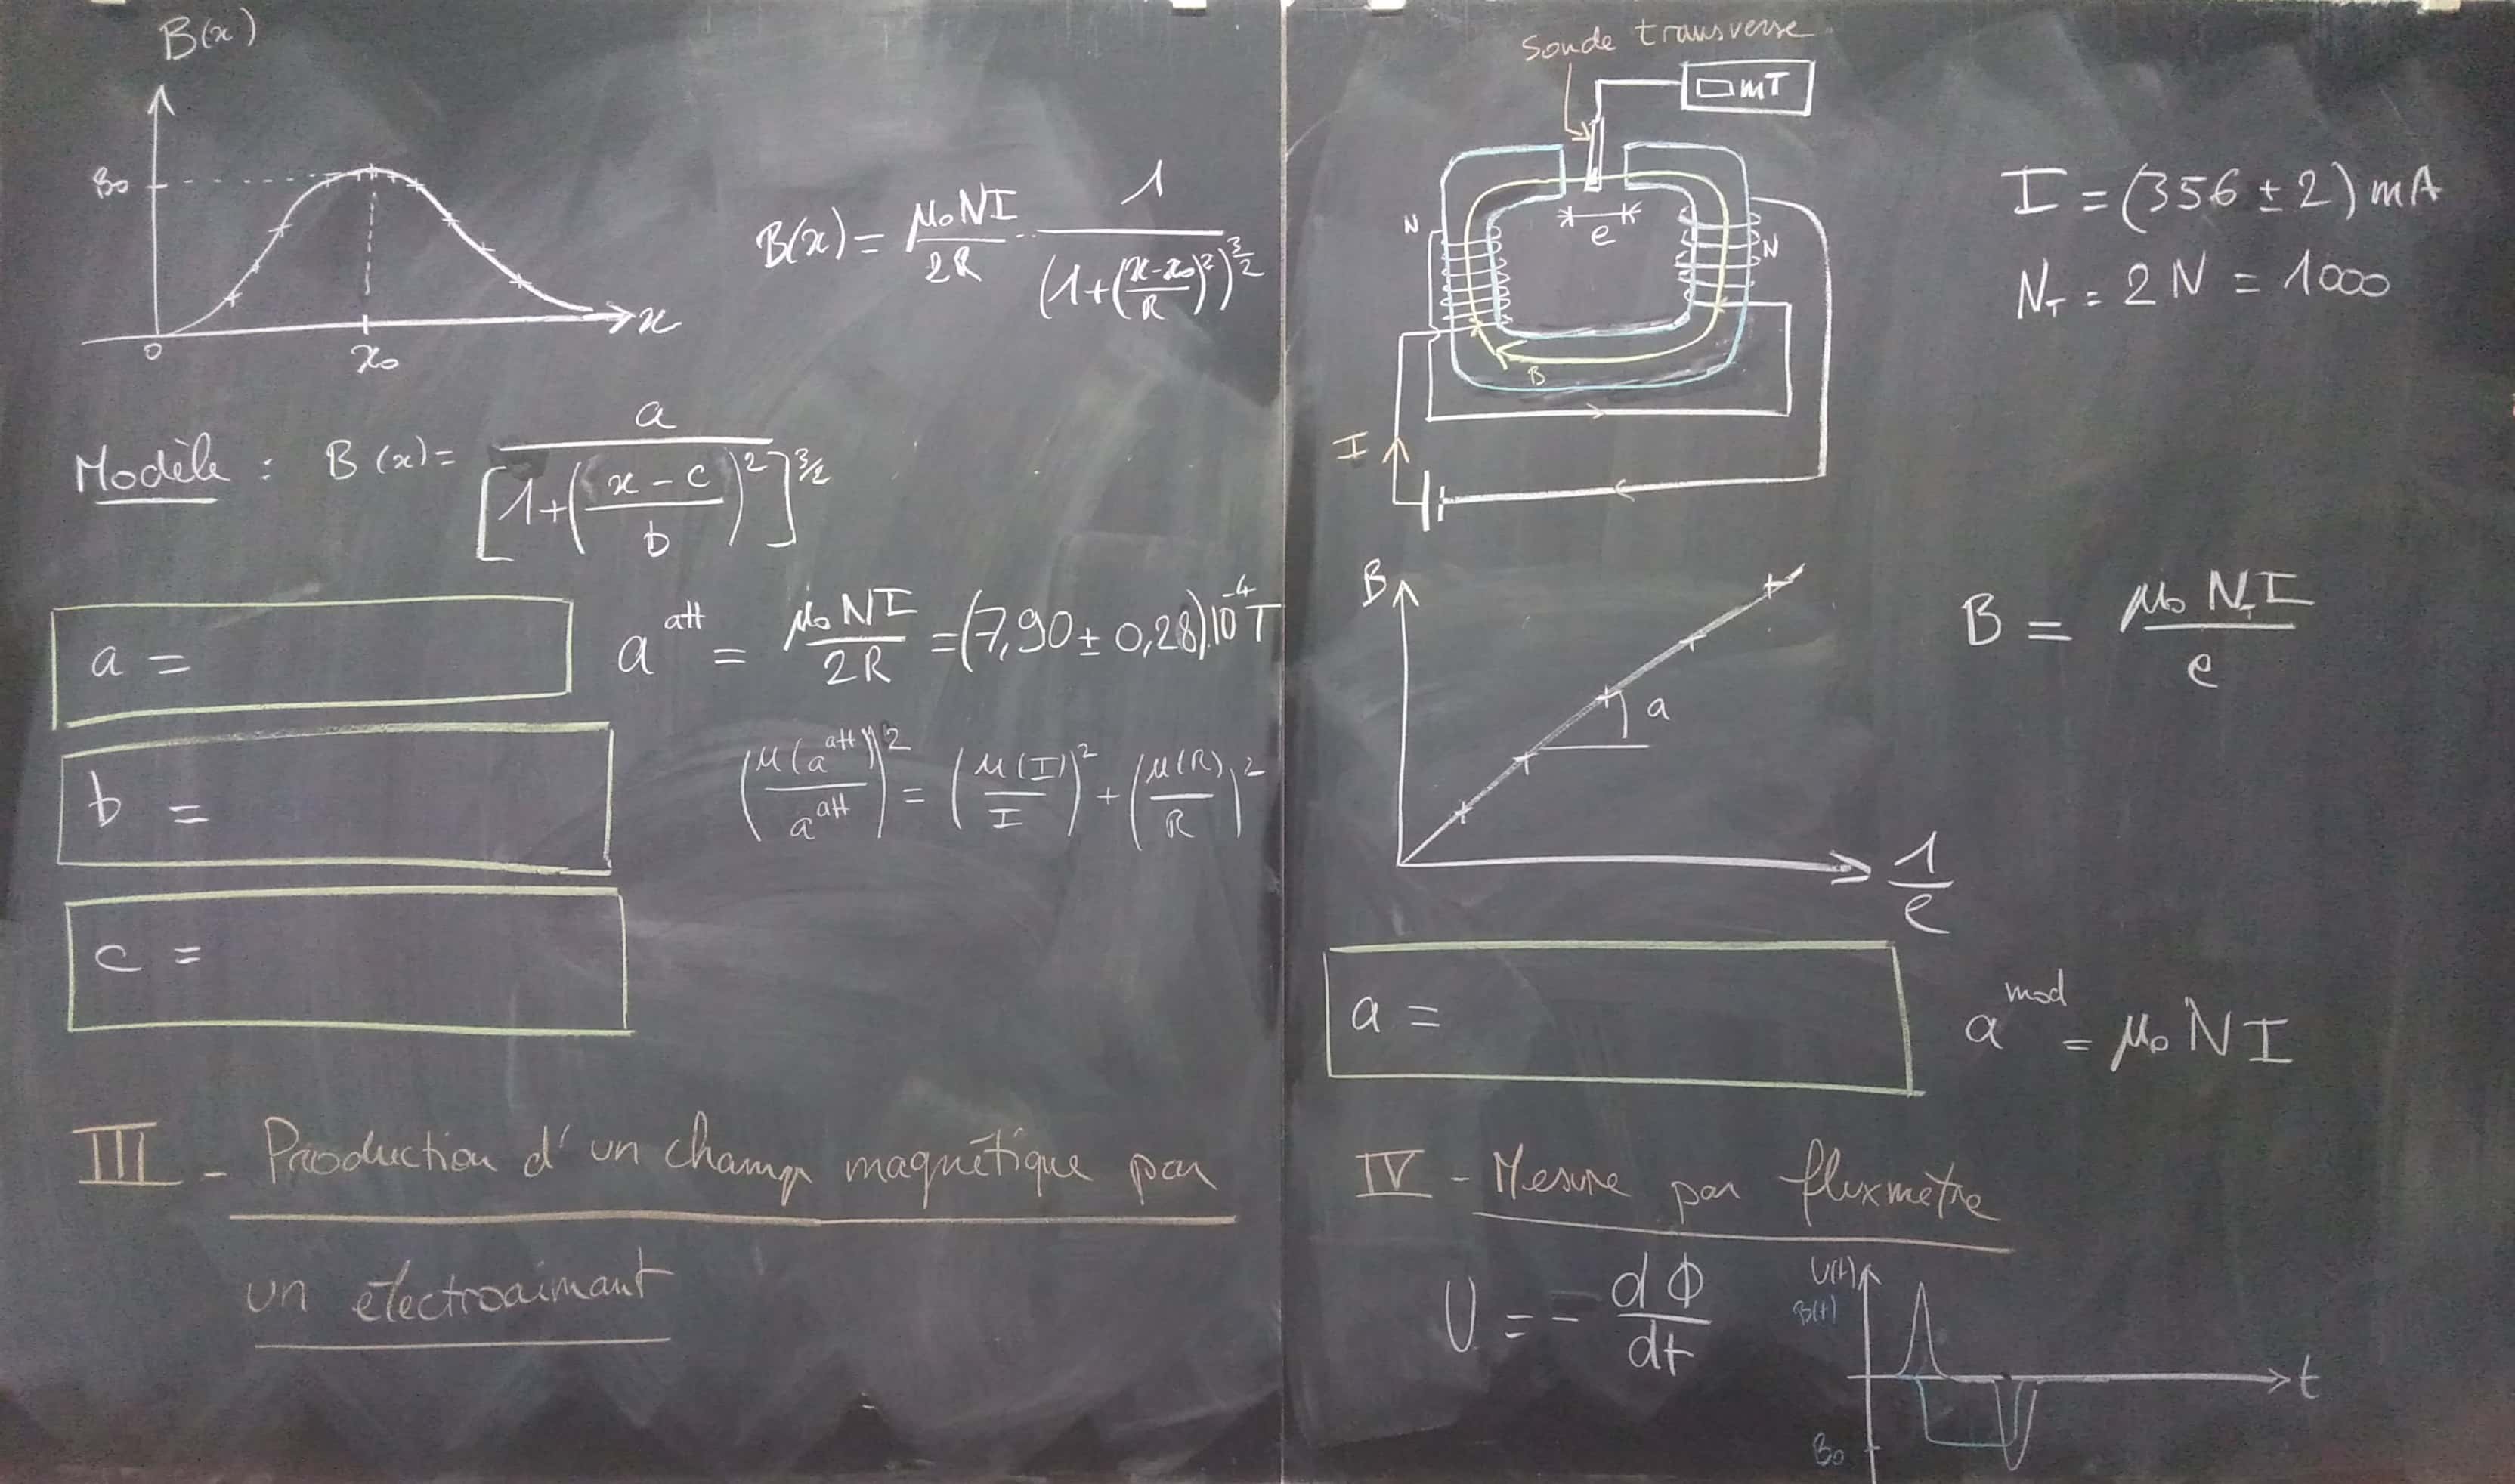 B(x)
B₀
0
x₀
x
B(x) = μ₀NI/2R · 1/(1+((x-x₀)/R)²)^(3/2)
Modèle : B(x) = a/[1+((x-c)/b)²]^(3/2)
a =
a^att = μ₀NI/2R = (7,90 ± 0,28).10⁻⁴T
b =
(u(a^att)/a^att)² = (u(I)/I)² + (u(R)/R)²
c =
III - Production d'un champ magnétique par
un électroaimant
Sonde transverse
mT
N
e
N
B
I
I = (356 ± 2) mA
N_T = 2N = 1000
B
a
1/e
B = μ₀N_TI/e
a =
a^mod = μ₀NI
IV - Mesure par fluxmètre
U = - dΦ/dt
U(t)
B(t)
t
B₀